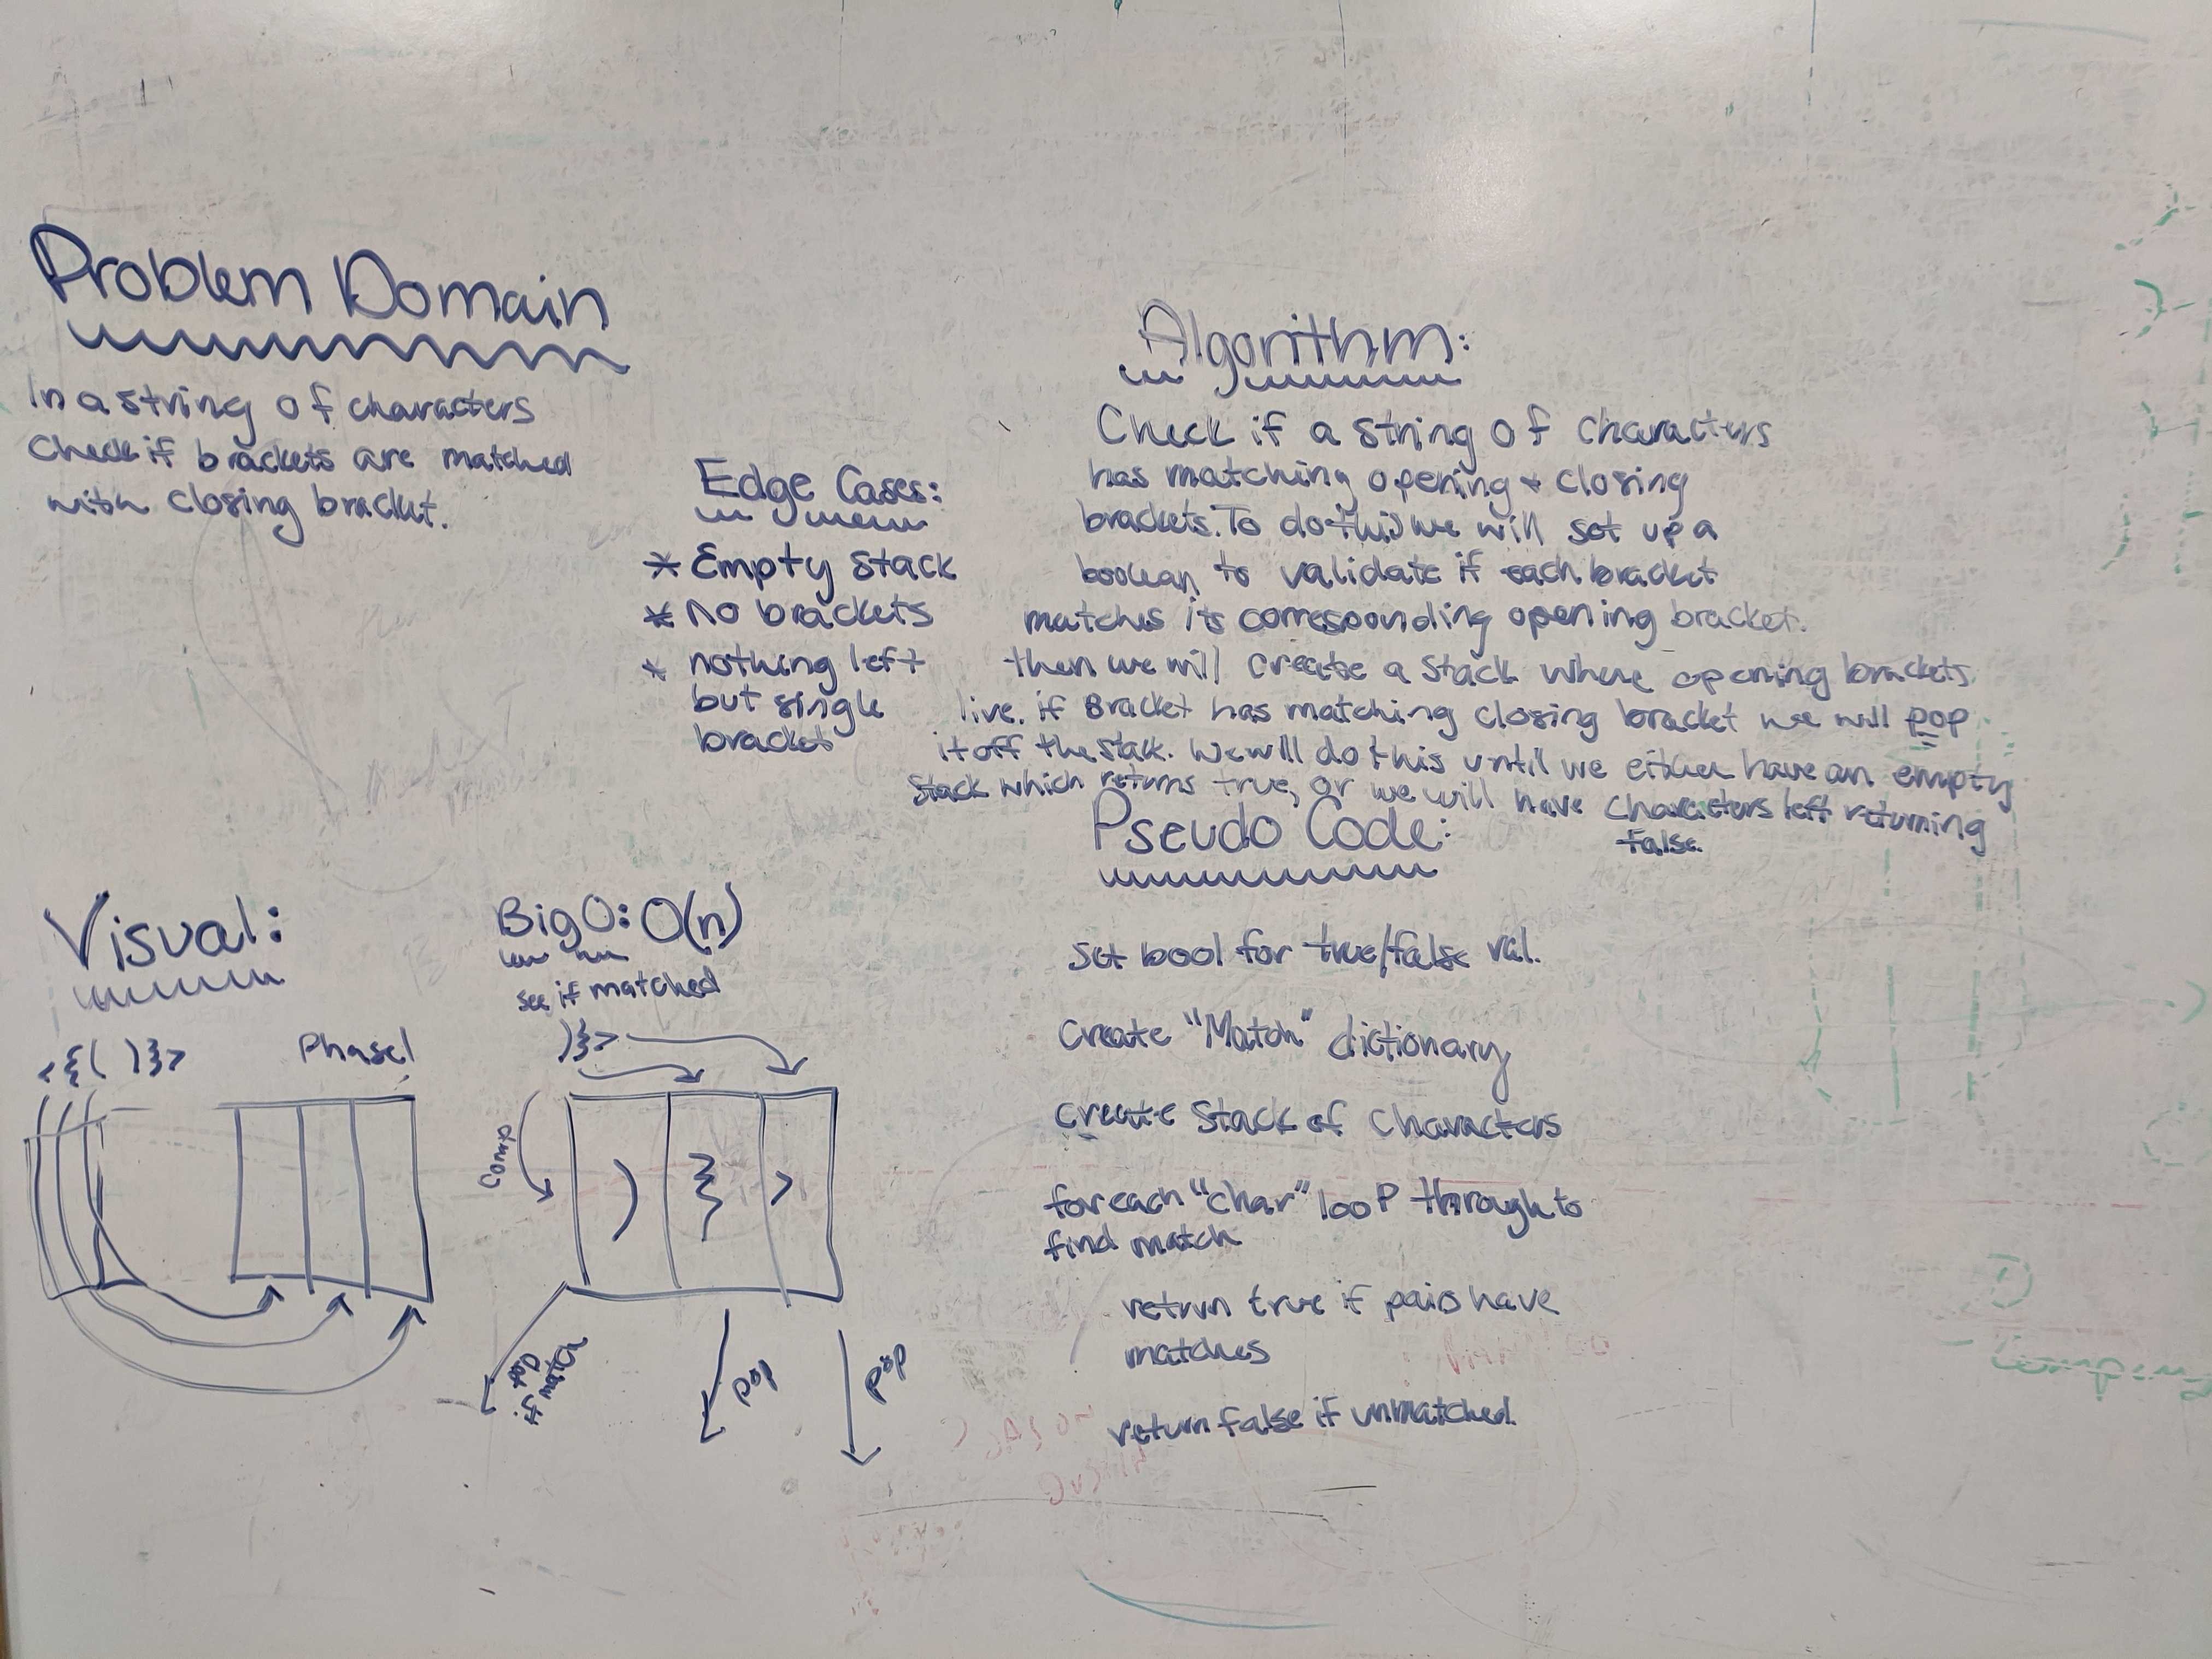 Problem Domain
In a string of characters
Check if brackets are matched
with closing bracket.
Edge Cases:
* Empty Stack
* No brackets
* nothing left
but single
bracket
Algorithm:
Check if a string of characters
has matching opening + closing
brackets. To do this we will set up a
boolean to validate if each bracket
matches its corresponding opening bracket.
then we will create a Stack where opening brackets
live. if Bracket has matching closing bracket we will pop
it off the stack. We will do this until we either have an empty
Stack which returns true, or we will have characters left returning
false.
Pseudo Code:
Set bool for true/false val.
Create "Match" dictionary
Create Stack of Characters
for each "char" loop through to
find match
return true if pairs have
matches
return false if unmatched.
Visual:
<{( )}>
Phase 1
Big O: O(n)
see if matched
)}>
) } >
it.
pop
pop